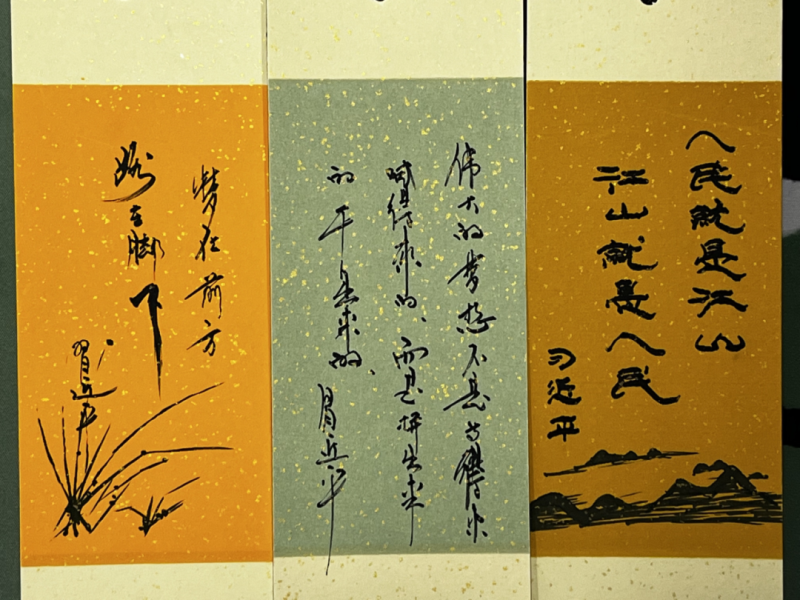 人民就是江山
江山就是人民
习近平
伟大的梦想不是等得来
喊得来的、而是拼出来
的干出来的、习近平
梦在前方
路在脚下
习近平